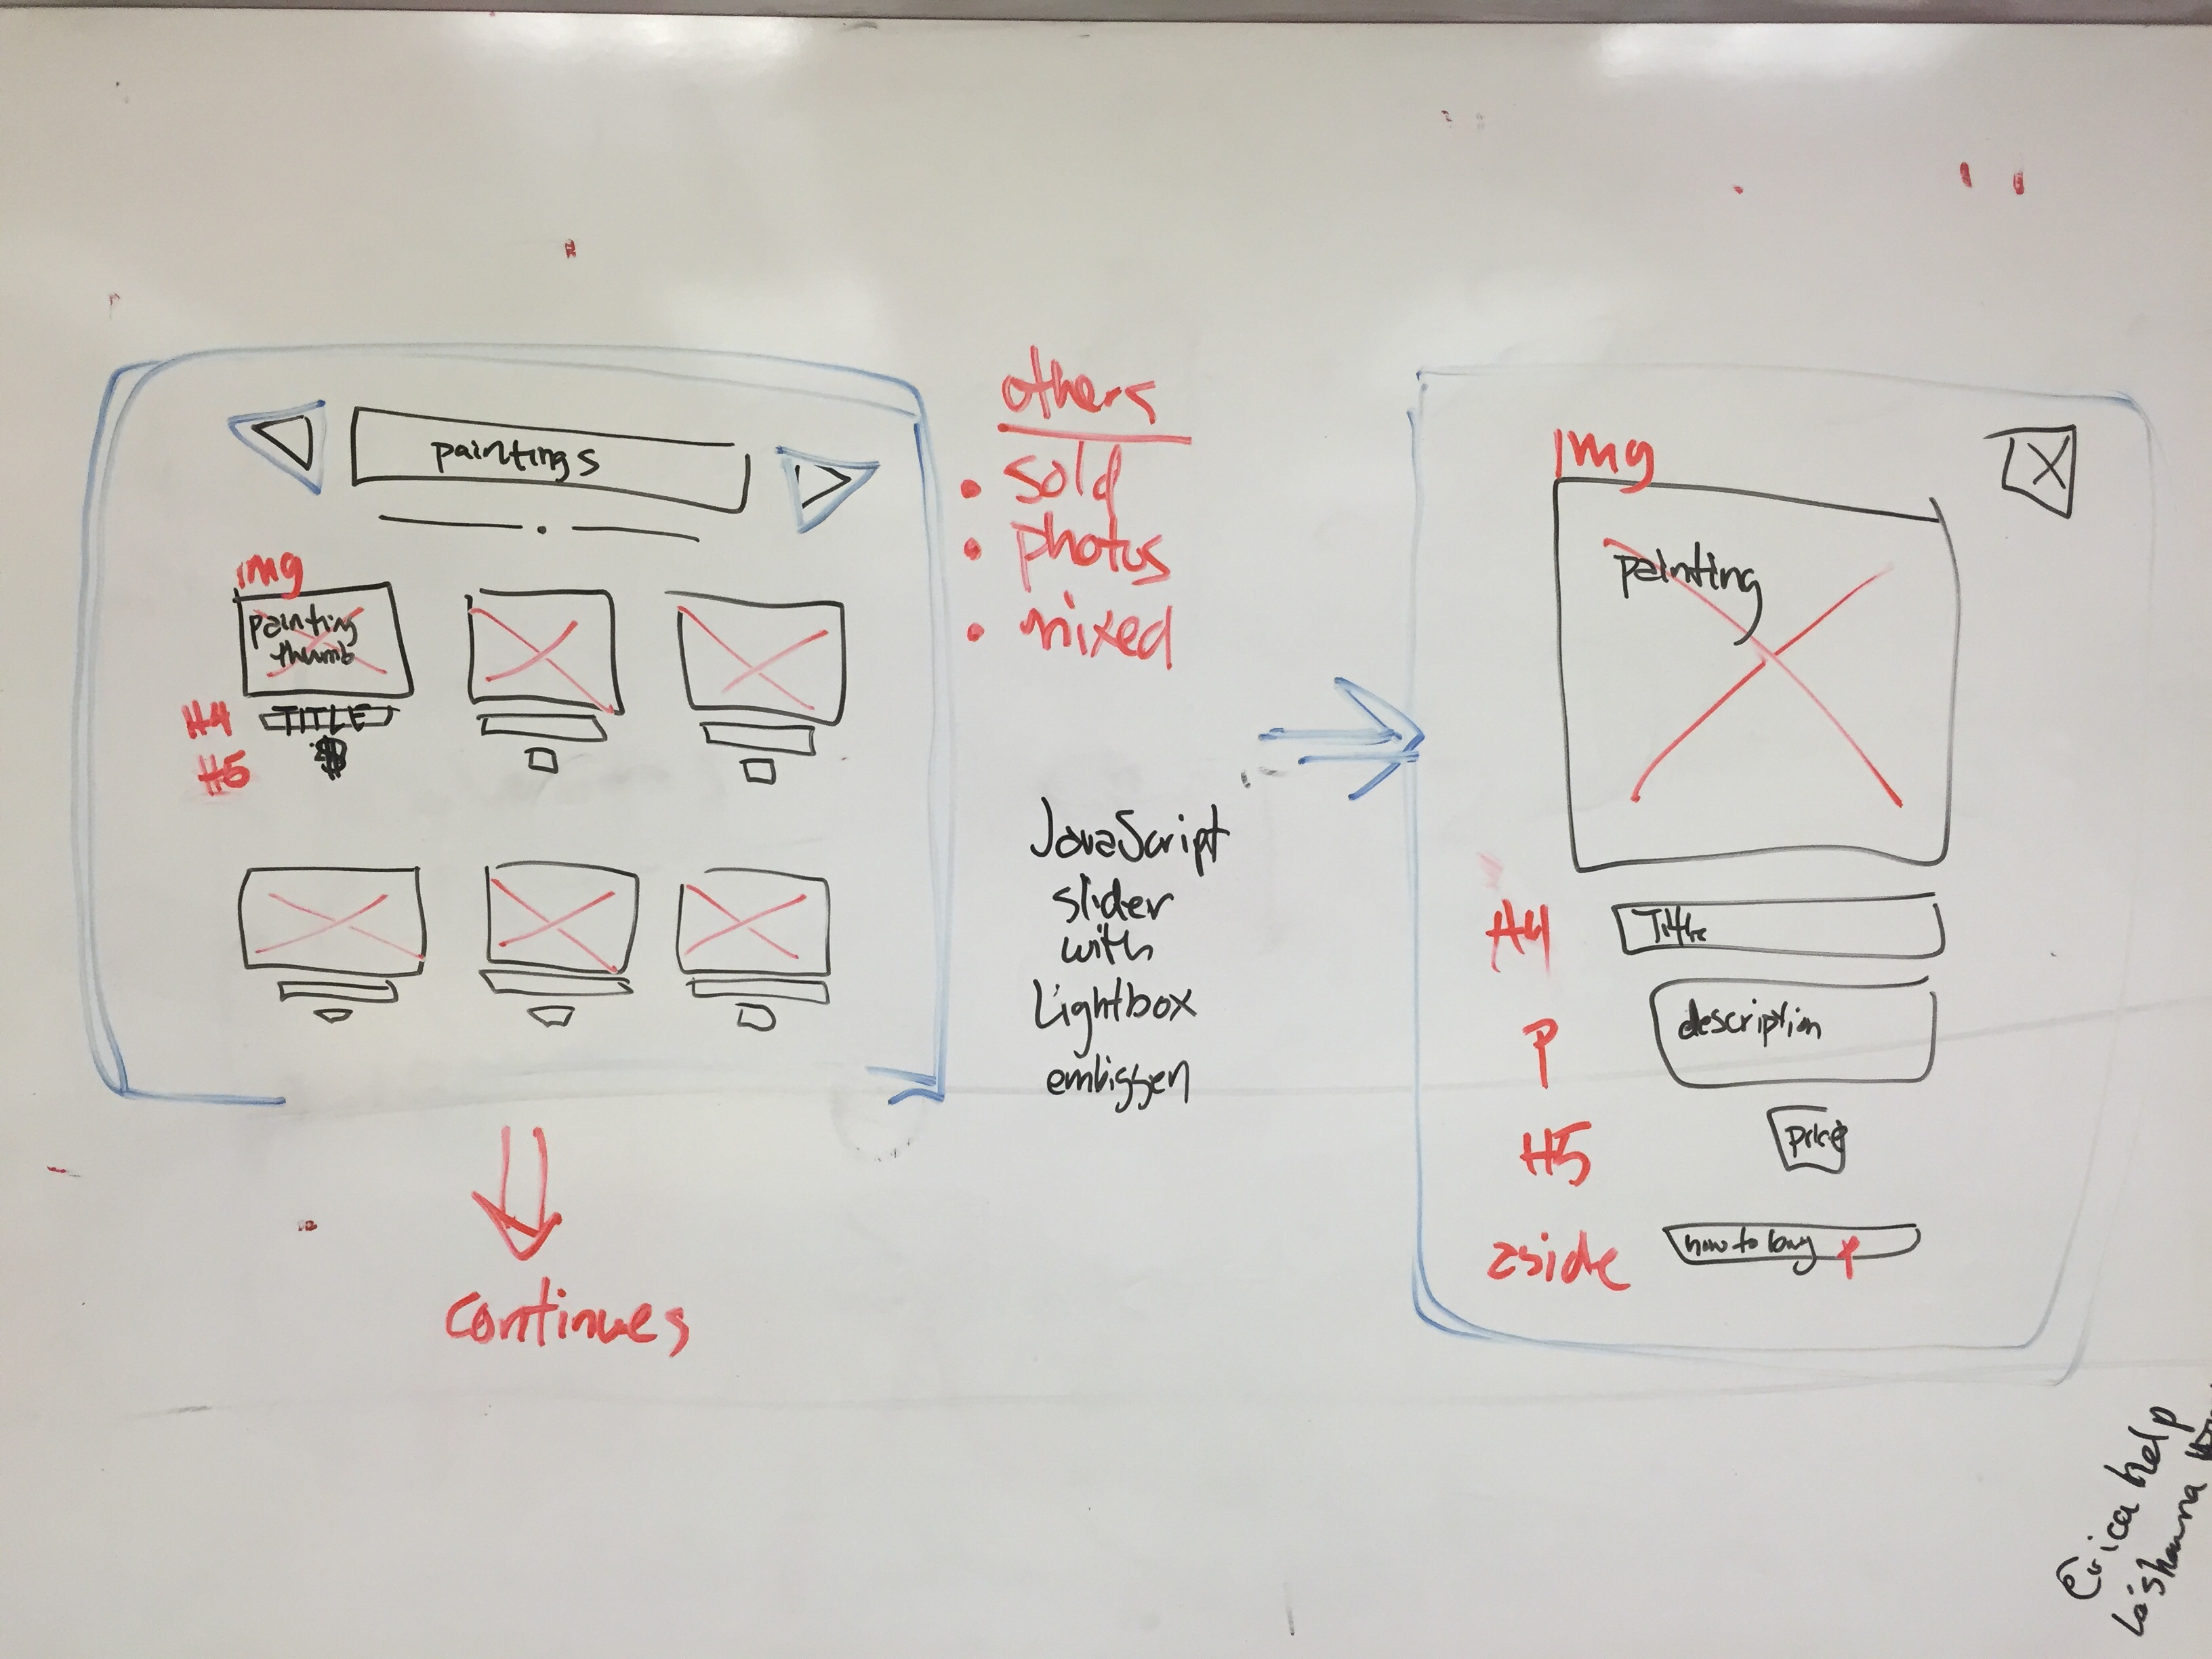 paintings
img
painting
thumb
H4
TITLE
$
H5
continues
others
• sold
• photos
• mixed
JavaScript
slider
with
Lightbox
embiggen
img
X
painting
H4
Title
P
description
H5
price
aside
how to buy
Erica help
Lashawna